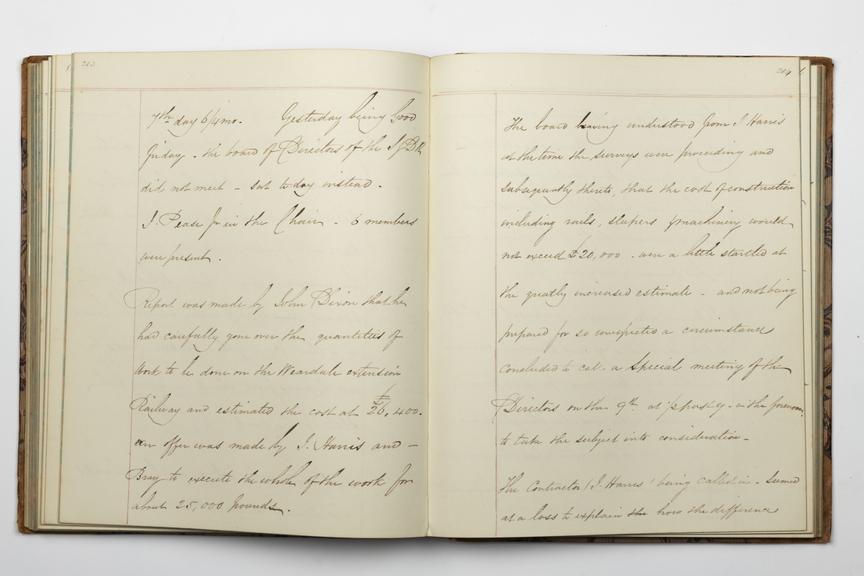 203
7th day 6/4mo. Yesterday being Good
Friday - the board of Directors of the S & D R
did not meet - sat to day instead.
J. Pease Jr in the Chair - 6 members
were present.
Report was made by John Dixon that he
had carefully gone over the quantities of
work to be done on the Weardale extension
Railway and estimated the cost at £26,400.
an offer was made by J. Harris and -
Bray to execute the whole of the work for
about 25,000 pounds.
204
The board having understood from J Harris
at the time the surveys were proceeding and
subsequently thereto, that the cost of construction
including rails, sleepers & machinery would
not exceed £20,000. were a little startled at
the greatly increased estimate - and not being
prepared for so unexpected a circumstance
concluded to call a Special meeting of the
Directors on the 9th at in the forenoon,
to take the subject into consideration -
The Contractor (J. Harris) being called in - seemed
at a loss to explain how the difference